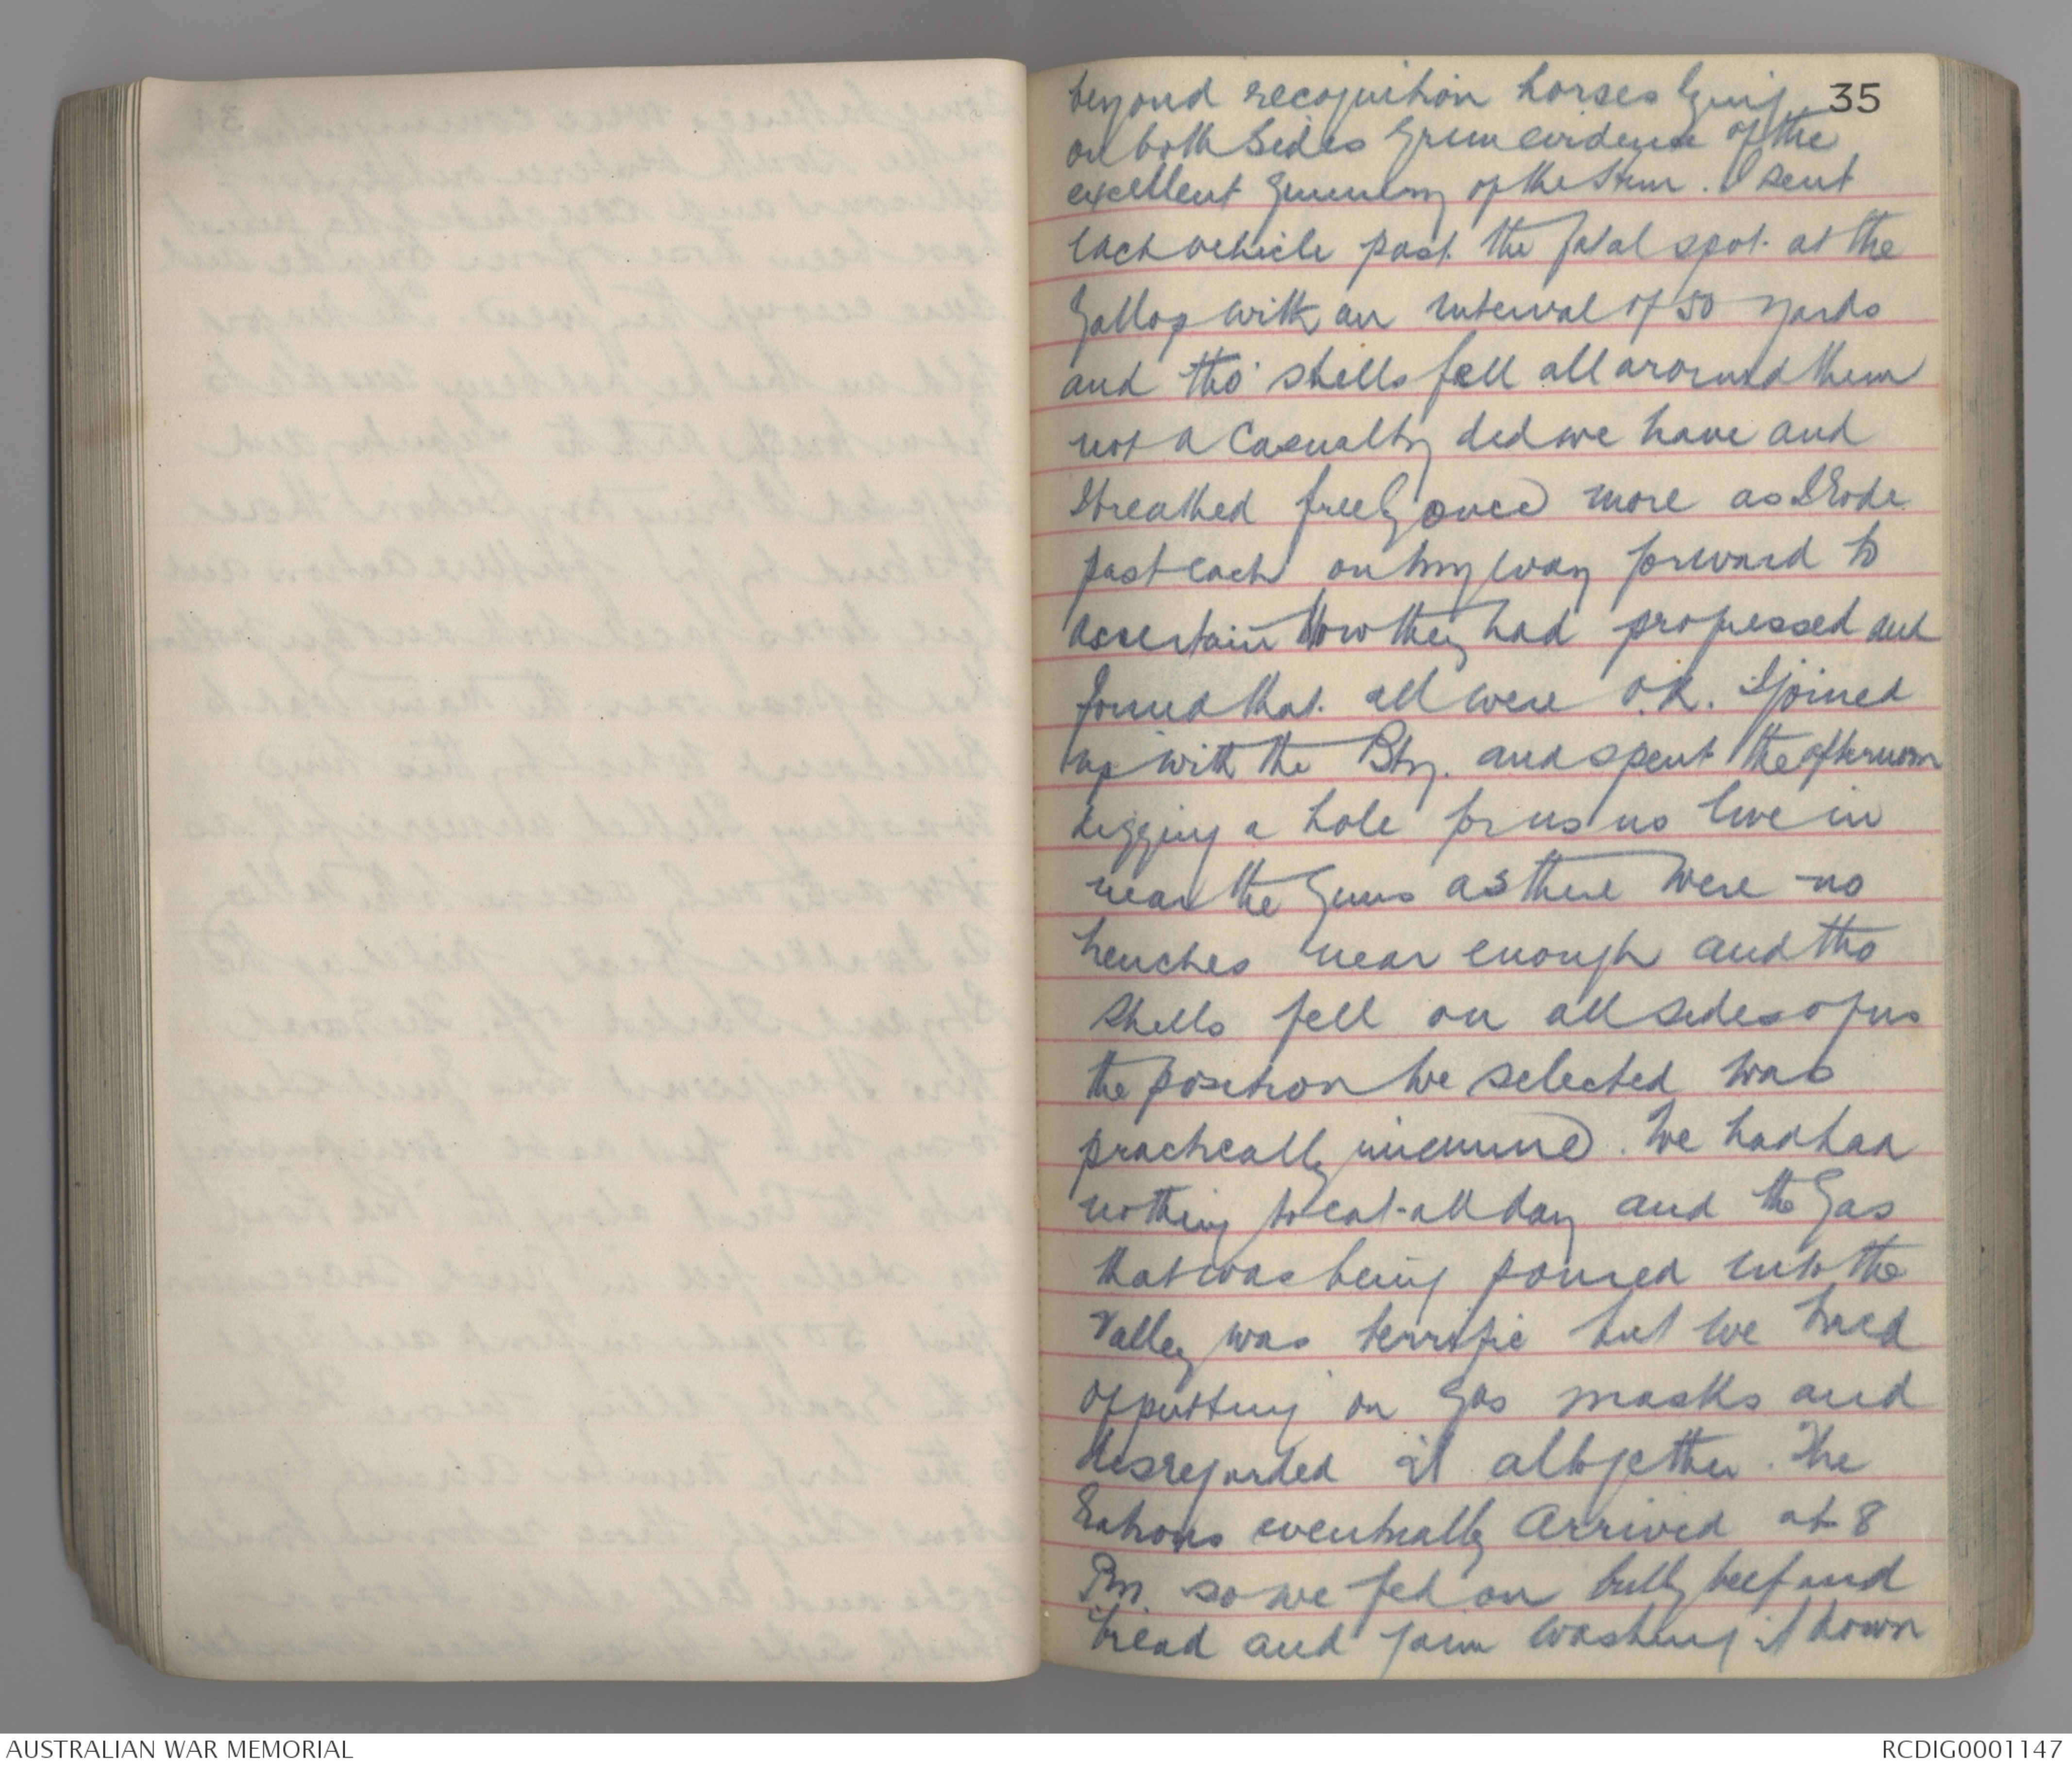 35
beyond recognition horses lying
on both sides grim evidence of the
excellent gunnery of the Hun. I sent
each vehicle past the fatal spot at the
Gallop with an interval of 50 yards
and tho' shells fell all around them
not a casualty did we have and
I breathed freely once more as I rode
past each on my way forward to
ascertain how they had progressed and
found that all were O.K. I joined
up with the Bty. and spent the afternoon
digging a hole for us to live in
near the guns as there were no
trenches near enough and tho
shells fell on all sides of us
the position we selected was
practically immune. We had had
nothing to eat all day and the Gas
that was being poured into the
valley was terrific but we tired
of putting on gas masks and
disregarded it altogether. The
Rations eventually arrived at 8
Pm. so we fed on bully beef and
bread and jam washing it down
AUSTRALIAN WAR MEMORIAL
RCDIG0001147